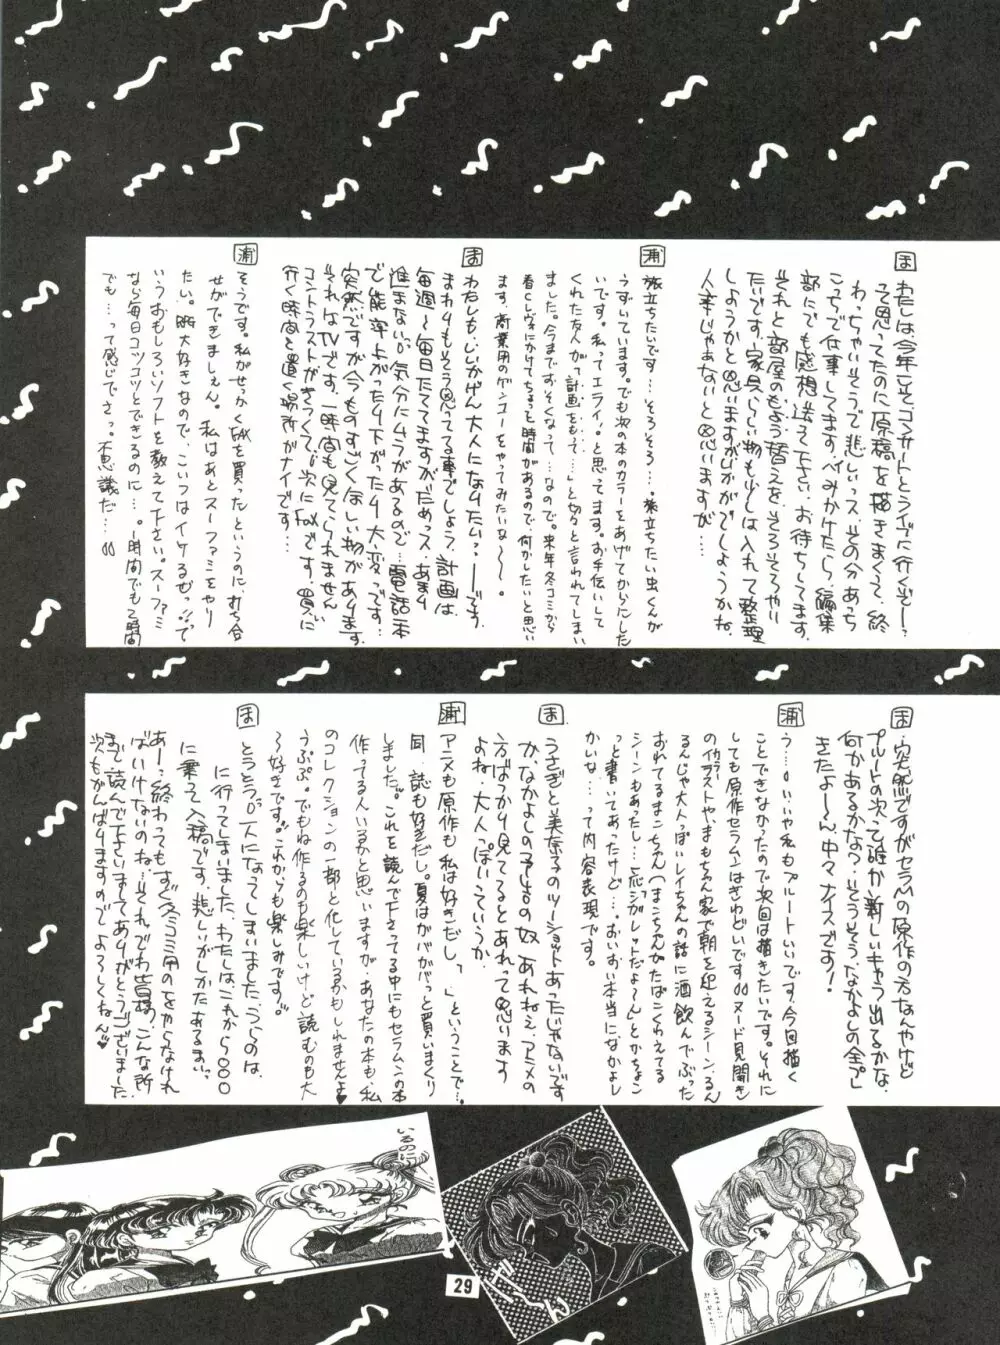 ま
わたしは今年こそコンサートとライブに行くぞー?
って思ってたのに原稿を描きまくって、終
わっちゃいそうで悲しいっス。その分あっち
こっちで仕事してます。ペイみかけたら、編集
部にでも感想送って下さい。お待ちしてます。
それと部屋のもよう替えを、そろそろやり
たいです。家具らしい物も少しは入れて整理
しようかと思いますがいかがでしょうかね。
人事じゃあないと思いますが…
浦
旅立ちたいです…そろそろ…。旅立ちたい虫くんが
うずいています。でも次の本のカラーをあげてからにした
いです。私ってエライ!と思ってます。お手伝いして
くれた友人が「計画をもって…」と切ると言われてしまい
ました。今まで
ます。商業用のゲンコーをやってみたいな〜〜。
ま
わたしもいいかげん大人になりたい?——です。
まわりもそう思ってる事でしょう。計画は
毎週〜毎日たててますがだめっス。あまり
進まない。気分にムラがあるので…電話一本
で能率上がったり下がったり大変っです…
突然ですが今ものすごくほしい物があります。
それはTVです。一時間も見てられません
コントラストがきつくて。次にFAXです。買いに
行く時間と置く場所がナイです…
浦
そうです。私がせっかくFAXを買ったというのに、打ち合
せができましぇん。私はあとスーファミをやり
たい。豚大好きなので、こいつはイケるぜっ!!って
いうおもしろいソフトを教えて下さい。スーファミ
なら毎日コツコツとできるのに…。一時間でも2時間
でも…って感じでさっ。不思議だ…。
ま
突然ですがセラムンの原作の方なんやけど
プルートの次って誰か新しいキャラ出るかな。
何かあるかな?。そうそう、なかよしの全プレ
きたよ〜ん、中々ナイスです!
浦
う…。いいや私もプルートいいです。今回描く
ことできなかったので次回は描きたいです。それに
しても原作セラムンはきわどいです。ヌード見開き
のイラストや、まもちゃん家で朝を迎えるシーン、るん
るんじゃ大人っぽいレイちゃんの話に酒飲んでぶった
おれてるまこちゃん(まこちゃんがたばこくわえてる
シーンもあったし…応シガレットだよ〜ん)とかちょこ
っと書いてあったけど…。おいおい本当になかよし
かいな…って内容表現です。
ま
うさぎと美奈子のツーショットあったじゃないです
か、なかよしの予告の奴。あれねぇ、アニメの
方ばっかり見てるとあれって思います
よね。大人っぽいっていうか。
浦
アニメも原作も私は好きだし。「」ということで…。
同人誌も好きだし。夏はガバガバっと買いまくり
しました。これを読んで下さってる中にもセラムンの本
作ってる人いるかと思いますが、あなたの本も、私
のコレクションの一部と化しているかもしれませんよ♥
うぷぷ。でもね作るのも楽しいけど読むのも大
〜好きです。これからも楽しみです。
ま
とうとう一人になってしまいました。うらのは
に行ってしまいました、わたしはこれから○○○
に乗って入稿です。悲しいがしかたあるまい。
あー?終わってもすぐ冬コミ用のをやらなければ
ばいけないのね…。それでわ皆様、こんな所
まで読んで下さいましてありがとうございました。
次もがんばりますのでよろしくねん♥
いるのに
29